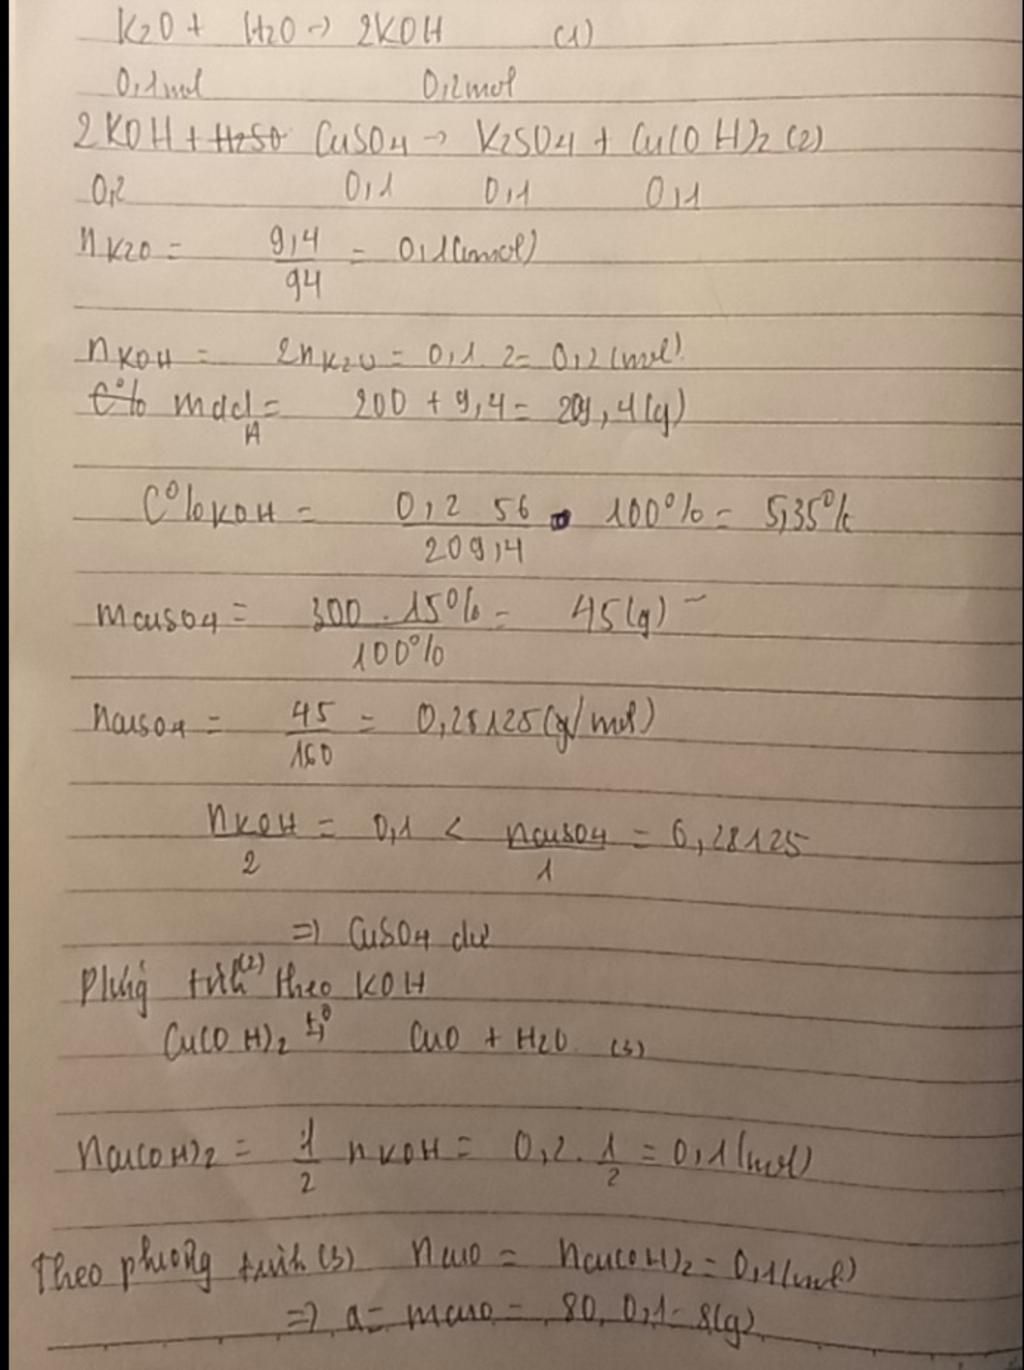 K2O + H2O → 2KOH (1)
0,1mol 0,2mol
2KOH + H2SO CuSO4 → K2SO4 + Cu(OH)2 (2)
0,2 0,1 0,1 0,1
nK2O = 9,4/94 = 0,1(mol)
nKOH = 2nK2O = 0,1. 2= 0,2(mol)
C% mdd A = 200 + 9,4 = 209,4(g)
C%KOH = 0,2 56/209,4 . 100% = 5,35%
mCuSO4 = 300 . 15%/100% = 45(g)
nCuSO4 = 45/160 = 0,28125(g/mol)
nKOH/2 = 0,1 < nCuSO4/1 = 0,28125
=> CuSO4 dư
trình (2) theo KOH
Cu(OH)2 t° CuO + H2O (3)
nCu(OH)2 = 1/2 nKOH = 0,2. 1/2 = 0,1(mol)
Theo phương trình (3) nCuO = nCu(OH)2 = 0,1(mol)
=> a= mCuO = 80. 0,1= 8(g)